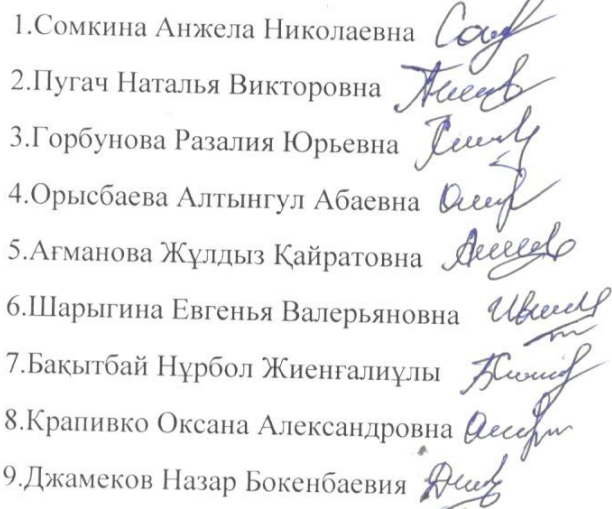 1.Сомкина Анжела Николаевна
2.Пугач Наталья Викторовна
3.Горбунова Разалия Юрьевна
4.Орысбаева Алтынгул Абаевна
5.Ағманова Жұлдыз Қайратовна
6.Шарыгина Евгенья Валерьяновна
7.Бақытбай Нұрбол Жиенғалиұлы
8.Крапивко Оксана Александровна
9.Джамеков Назар Бокенбаевия